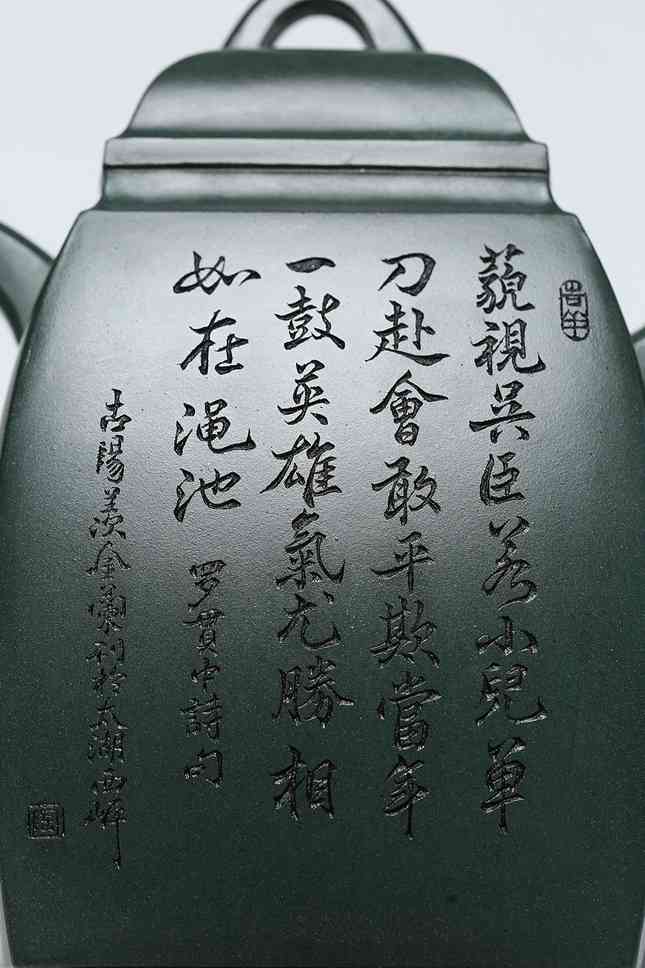 藐視吳臣若小兒單
刀赴會敢平欺當年
一鼓英雄氣尤勝相
如在渑池 罗貫中詩句
古陽羨金刊於太湖西畔